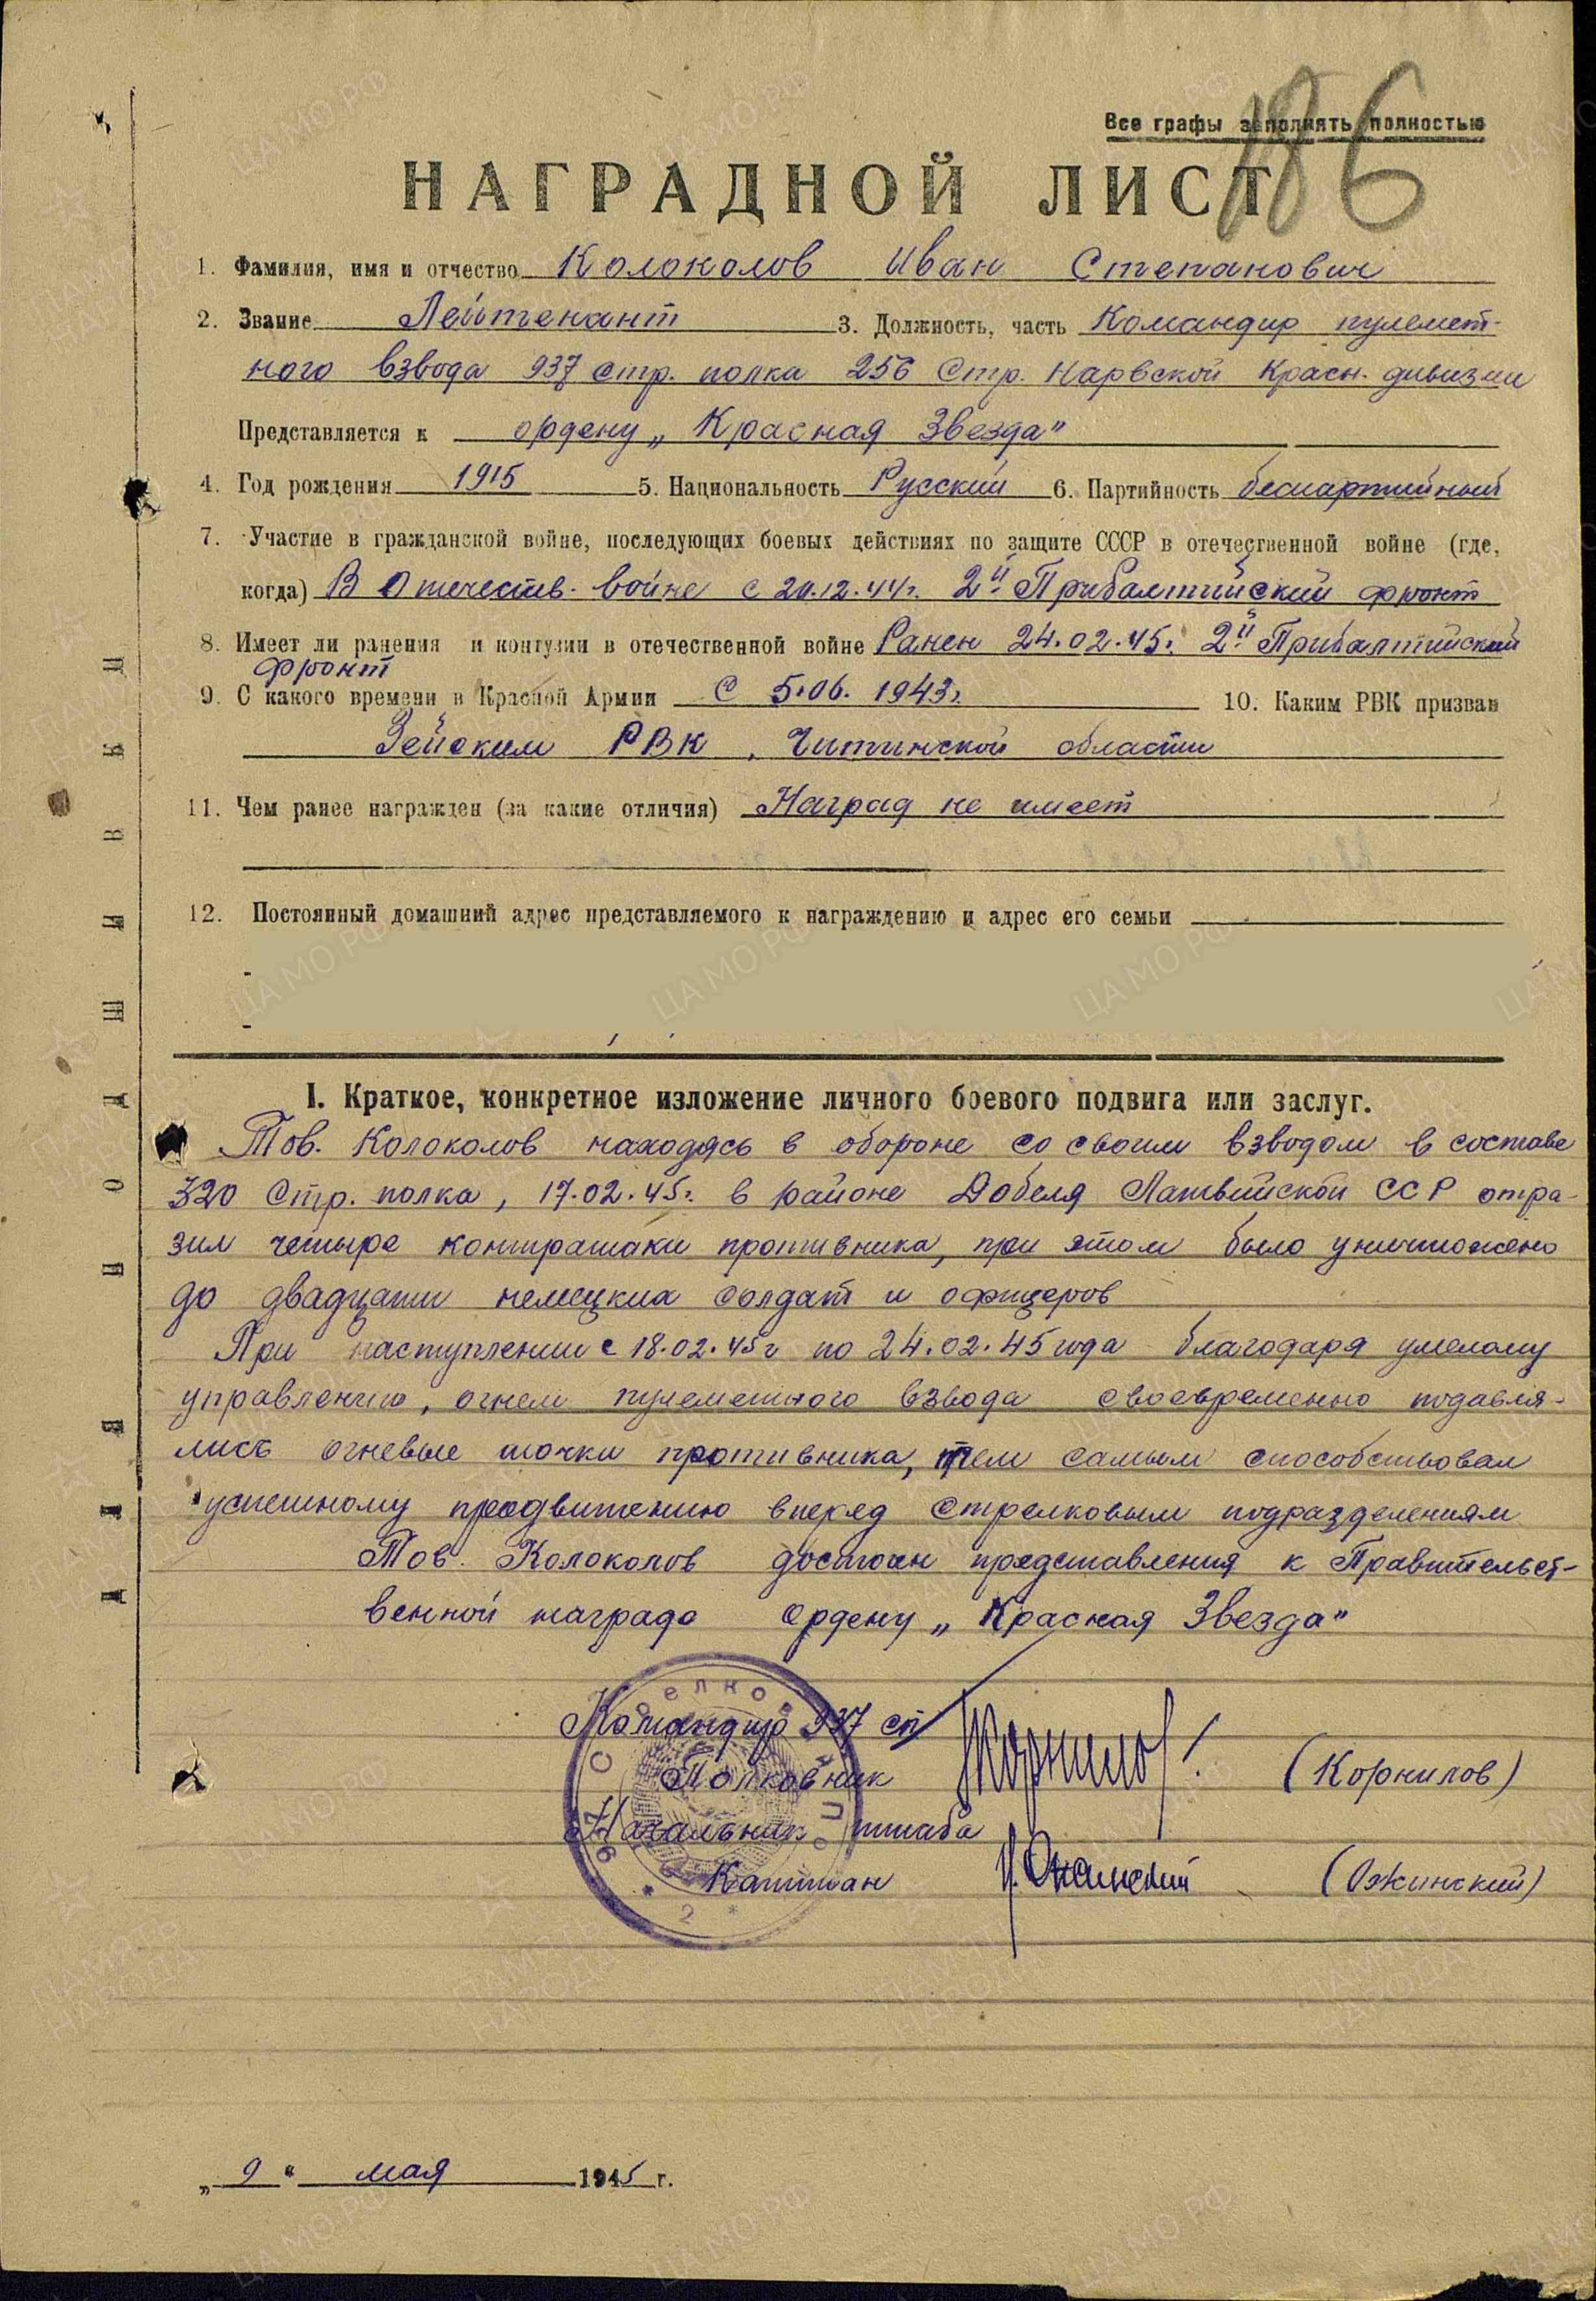 Все графы заполнять полностью
186
НАГРАДНОЙ ЛИСТ
1. Фамилия, имя и отчество Колоколов Иван Степанович
2. Звание Лейтенант 3. Должность, часть Командир пулемет-
ного взвода 937 стр. полка 256 Стр. Нарвской Красн. дивизии
Представляется к ордену „Красная Звезда"
4. Год рождения 1915 5. Национальность Русский 6. Партийность беспартийный
7. Участие в гражданской войне, последующих боевых действиях по защите СССР в отечественной войне (где,
когда) В Отечеств. войне с 20.12.44г. 2й Прибалтийский фронт
8. Имеет ли ранения и контузии в отечественной войне Ранен 24.02.45г. 2й Прибалтийский
фронт
9. С какого времени в Красной Армии С 5.06.1943г. 10. Каким РВК призван
Зейским РВК, Читинской области
11. Чем ранее награжден (за какие отличия) Наград не имеет
12. Постоянный домашний адрес представляемого к награждению и адрес его семьи
I. Краткое, конкретное изложение личного боевого подвига или заслуг.
Тов. Колоколов находясь в обороне со своим взводом в составе
320 Стр. полка, 17.02.45г. в районе Добеля Латвийской ССР отра-
зил четыре контратаки противника, при этом было уничтожено
до двадцати немецких солдат и офицеров
При наступлении с 18.02.45г по 24.02.45 года благодаря умелому
управлению, огнем пулеметного взвода своевременно подавля-
лись огневые точки противника, тем самым способствовал
успешному продвижению вперед стрелковым подразделениям
Тов. Колоколов достоин представления к Правительст-
венной награде ордену „Красная Звезда"
Командир 937 сп
Полковник (Корнилов)
Начальник штаба
Капитан (Ожинский)
„9" мая 1945 г.
ДЛЯ ПОДШИВКИ